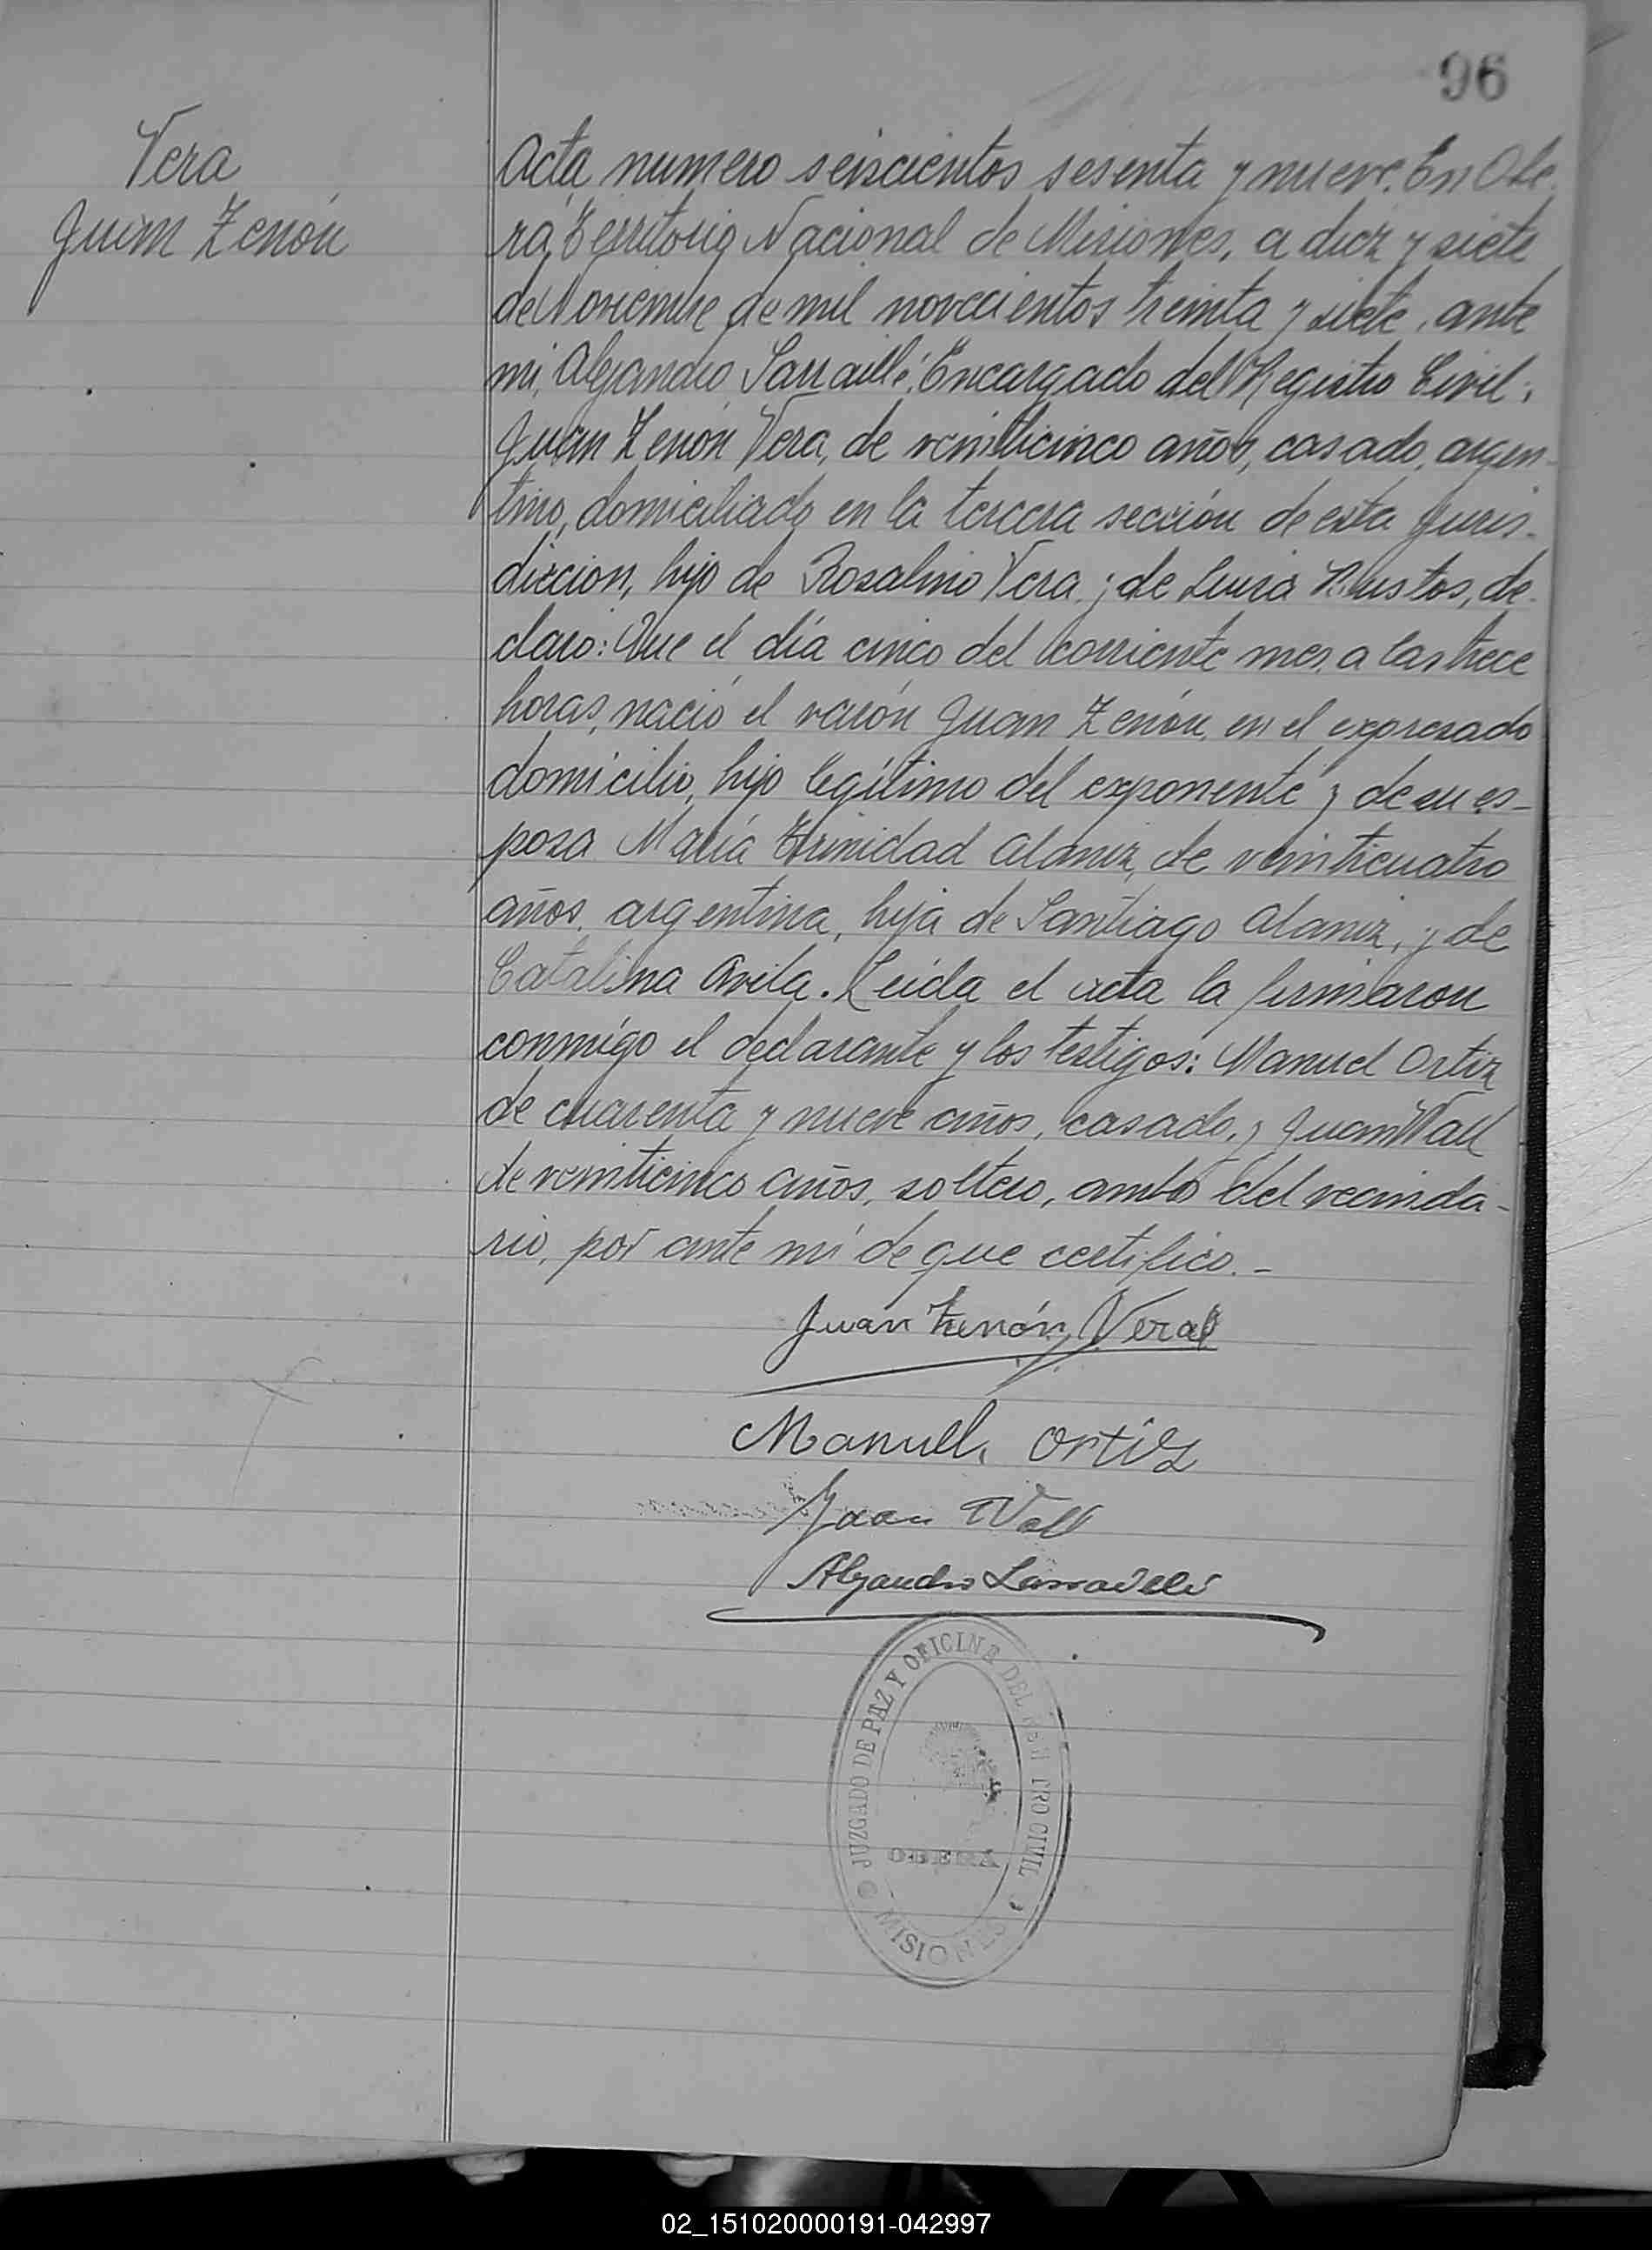 96
Vera
Juan Zenón
Acta numero seiscientos sesenta y nueve. En Obe-
rá, Territorio Nacional de Misiones, a diez y siete
de Noviembre de mil novecientos treinta y siete, ante
mi, Alejandro Sarraillé, Encargado del Registro Civil,
Juan Zenón Vera, de veinticinco años, casado, argen-
tino, domiciliado en la tercera sección de esta juris-
diccion, hijo de Rosalino Vera y de Luisa Bustos, de-
claro: Que el día cinco del corriente mes, a las trece
horas, nació el varón Juan Zenón, en el expresado
domicilio, hijo legítimo del exponente y de su es-
posa María Trinidad Alaniz, de veinticuatro
años, argentina, hija de Santiago Alaniz, y de
Catalina Avila. Leida el acta la firmaron
conmigo el declarante y los testigos: Manuel Ortiz
de cuarenta y nueve años, casado, y Juan Wall
de veinticinco años, soltero, ambos del vecinda-
rio, por ante mí de que certifico.-
Juan Zenón Vera
Manuel Ortiz
Juan Wall
Alejandro Sarraillé
JUZGADO DE PAZ Y OFICINA DEL REGISTRO CIVIL
OBERÁ
MISIONES
02_151020000191-042997